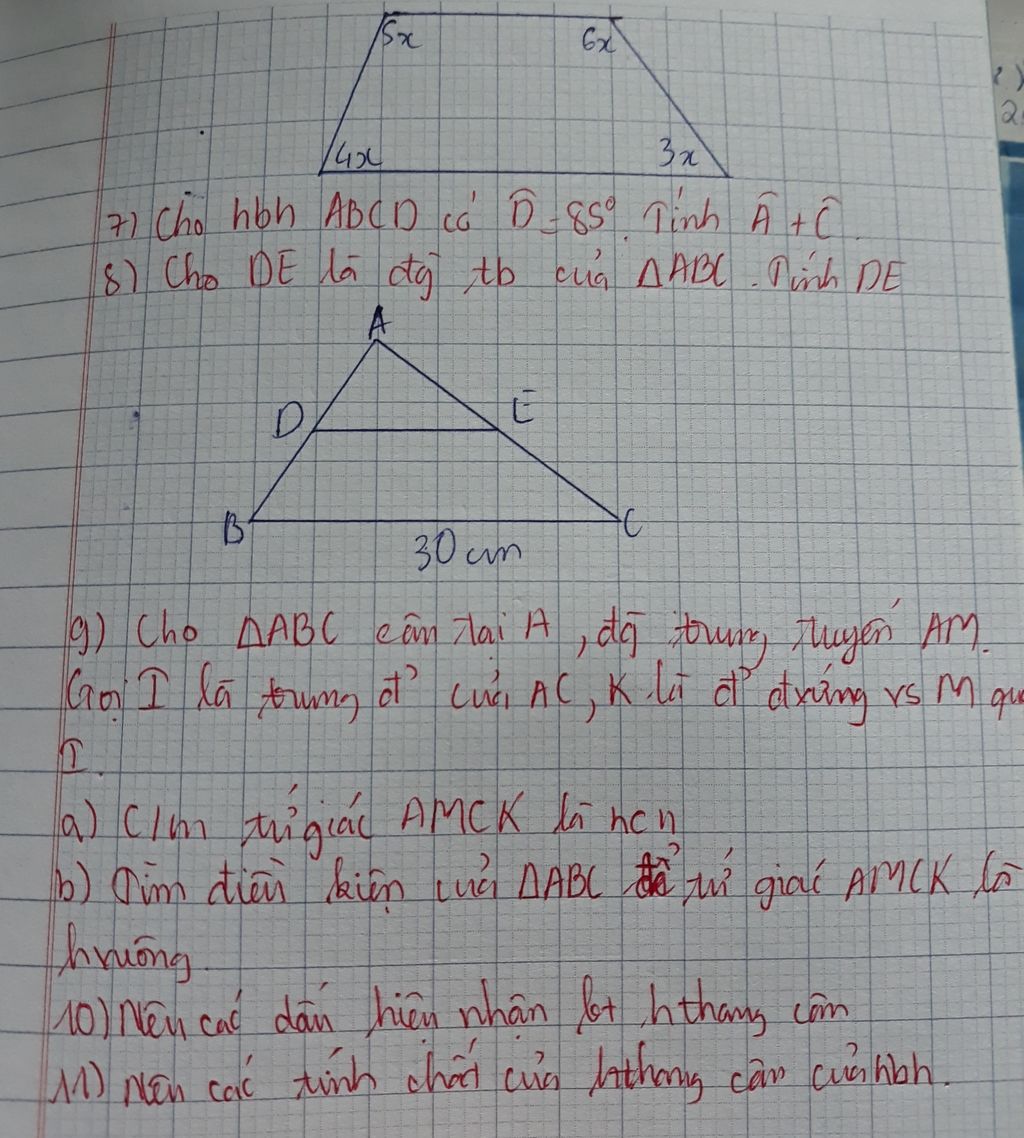 5x 6x
4x 3x
7) Cho hbh ABCD có D̂ = 85°. Tính Â + Ĉ.
8) Cho DE là đg tb của ΔABC. Tính DE
A
D E
B C
30 cm
9) Cho ΔABC cân tại A, đg trung tuyến AM.
Gọi I là trung đ' của AC, K là đ' đxứng vs M qu
I.
a) C/m tứ giác AMCK là hcn
b) Tìm điều kiện của ΔABC để tứ giác AMCK là
hvuông.
10) Nêu các dấu hiệu nhận bt hthang cân
11) Nêu các tính chất của hthang cân của hbh.
2